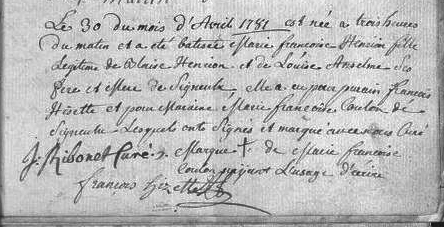 Le 30 du mois d'Avril 1751 est née a trois heures
du matin et a eté batisée Marie francoise Henrion fille
Legitime de Blaise Henrion et de Louise Anselme Ses
pere et Mere de Signeulx, Elle a eu pour parain francois
Hizette et pour Maraine Marie francoise Coulon de
Signeulx Lesquels onts Signés et marqué avec nous Curé
J: Ribonet Curé Marque † de Marie francoise
Coulon L'usage d'écrire
françois hizette